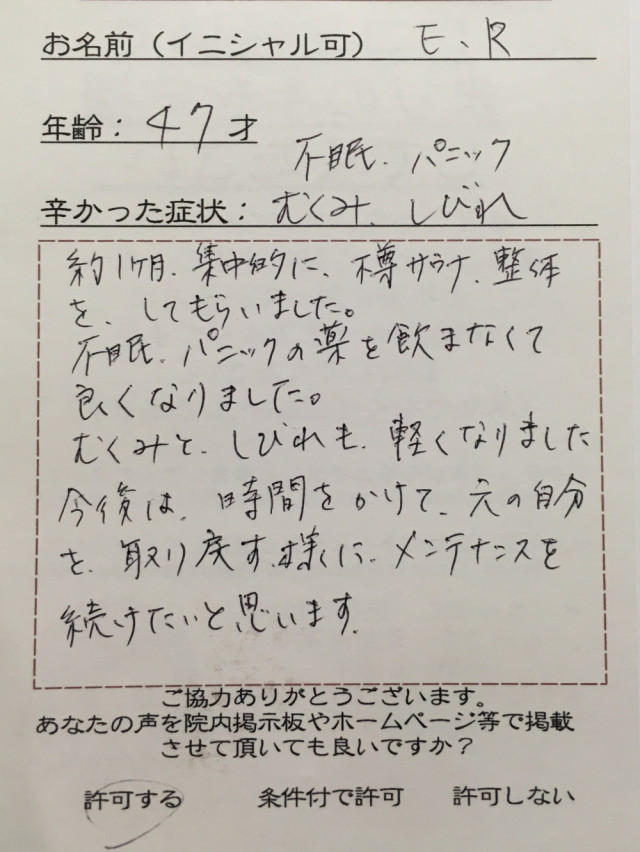 お名前（イニシャル可） E、R
年齢：47才
不眠、パニック
辛かった症状：むくみ、しびれ
約1ヶ月、集中的に、樽サウナ、整体
を、してもらいました。
不眠、パニックの薬を飲まなくて
良くなりました。
むくみと、しびれも、軽くなりました
今後は、時間をかけて、元の自分
を、取り戻す、様に、メンテナンスを
続けたいと思います。
ご協力ありがとうございます。
あなたの声を院内掲示板やホームページ等で掲載
させて頂いても良いですか？
許可する 条件付で許可 許可しない